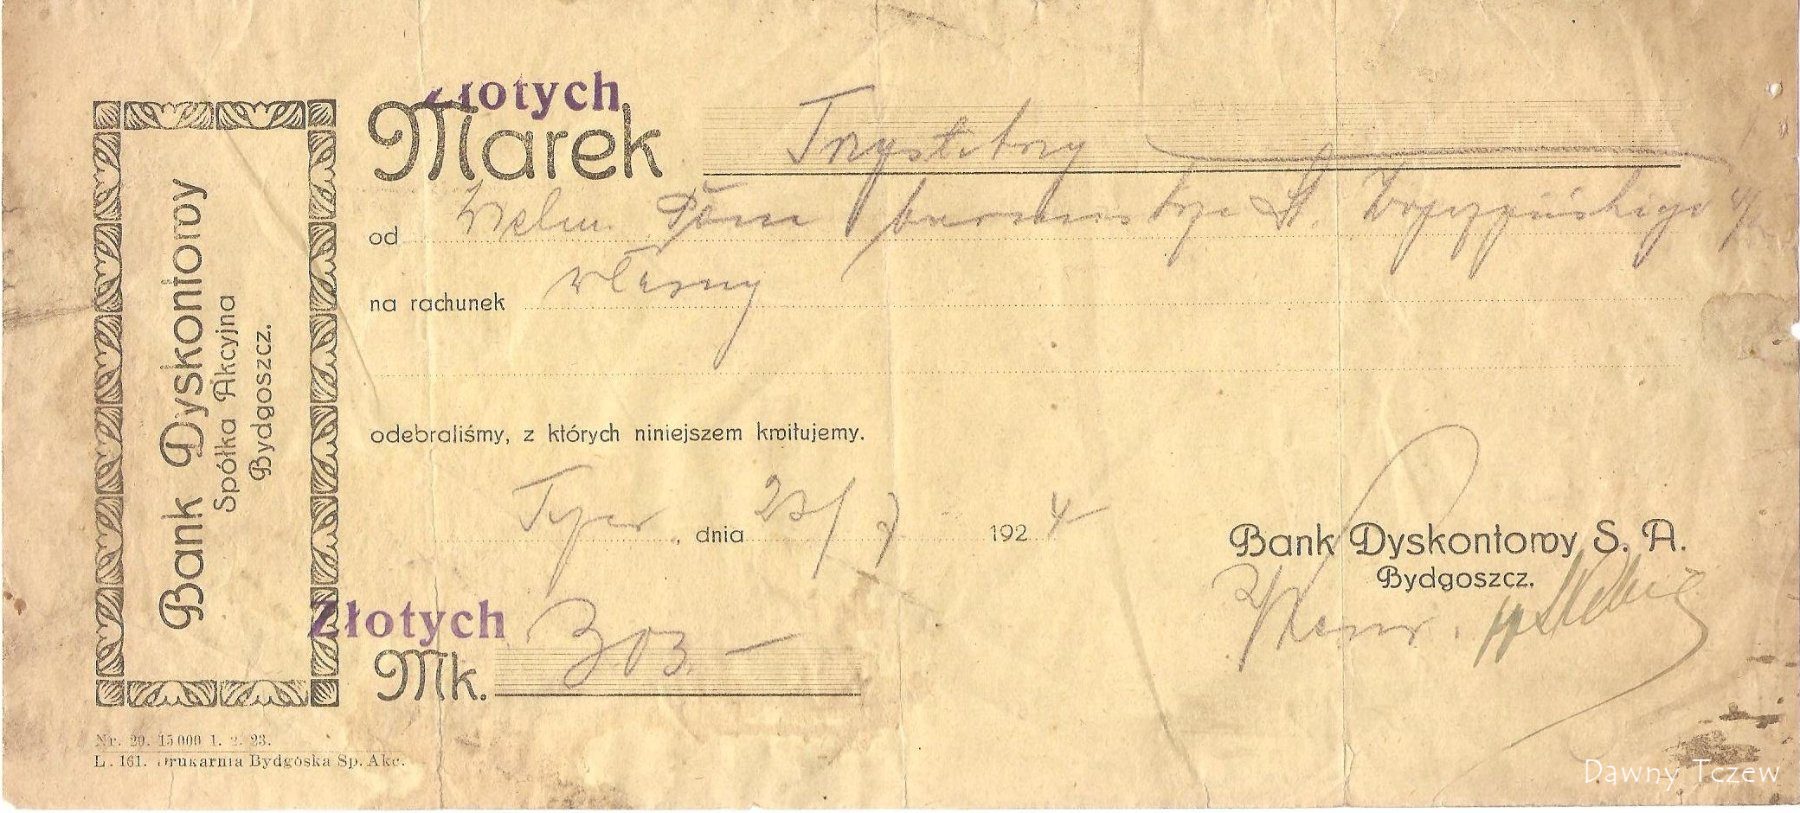 Bank Dyskontowy
Spółka Akcyjna
Bydgoszcz.
Złotych
Marek Trzystatrzy
od Wielm. Pana burmistrza St.
na rachunek własny
odebraliśmy, z których niniejszem kwitujemy.
Tczew, dnia 23/7 1924
Bank Dyskontowy S. A.
Bydgoszcz.
Złotych
Mk. 303.-
Nr. 29. 15000 1. 2. 23.
L. 161. Drukarnia Bydgoska Sp. Akc.
Dawny Tczew